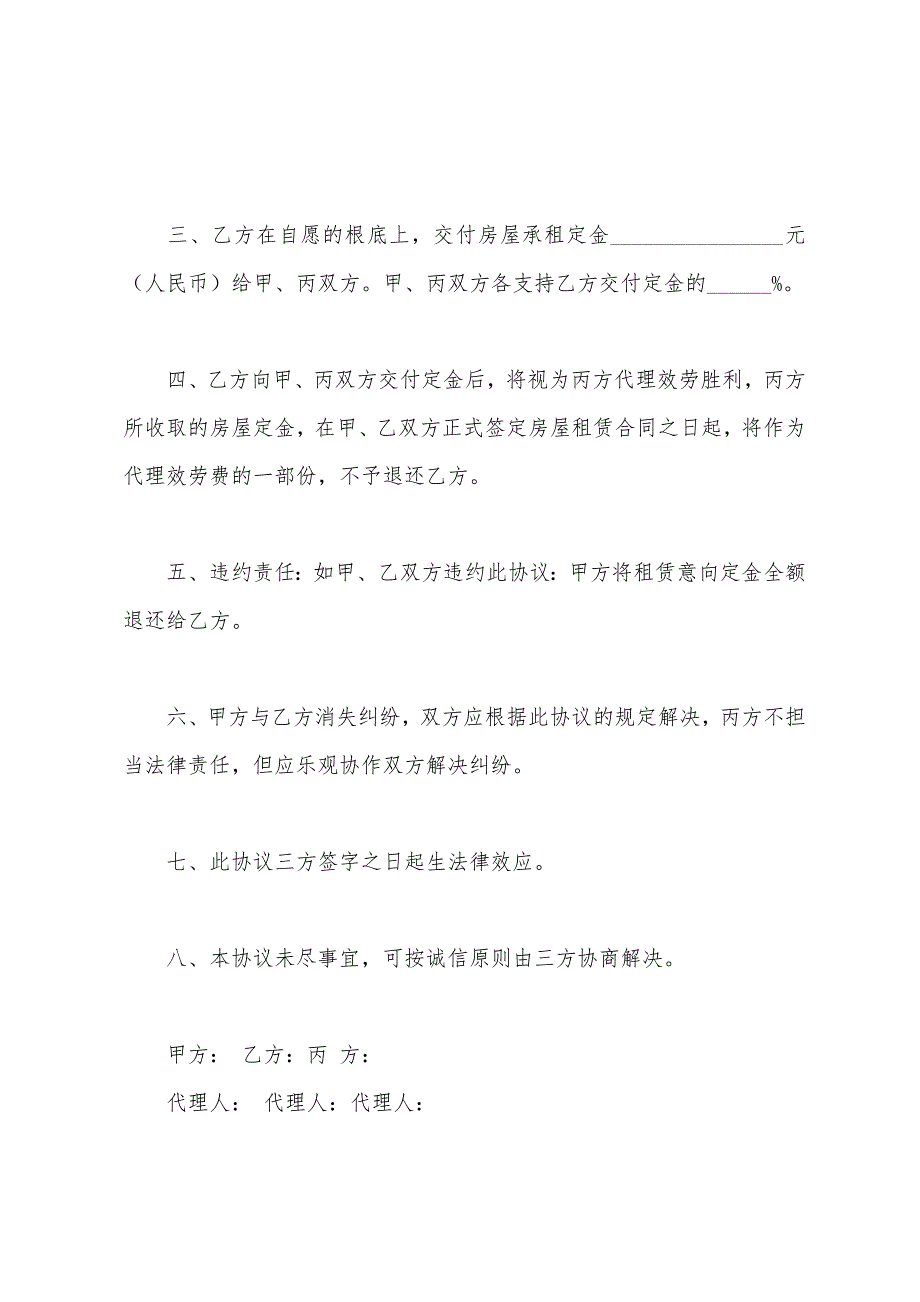 三、乙方在自愿的根底上，交付房屋承租定金________________元
（人民币）给甲、丙双方。甲、丙双方各支持乙方交付定金的______%。
四、乙方向甲、丙双方交付定金后，将视为丙方代理效劳胜利，丙方
所收取的房屋定金，在甲、乙双方正式签定房屋租赁合同之日起，将作为
代理效劳费的一部份，不予退还乙方。
五、违约责任：如甲、乙双方违约此协议：甲方将租赁意向定金全额
退还给乙方。
六、甲方与乙方消失纠纷，双方应根据此协议的规定解决，丙方不担
当法律责任，但应乐观协作双方解决纠纷。
七、此协议三方签字之日起生法律效应。
八、本协议未尽事宜，可按诚信原则由三方协商解决。
甲方： 乙方：丙 方：
代理人： 代理人：代理人：